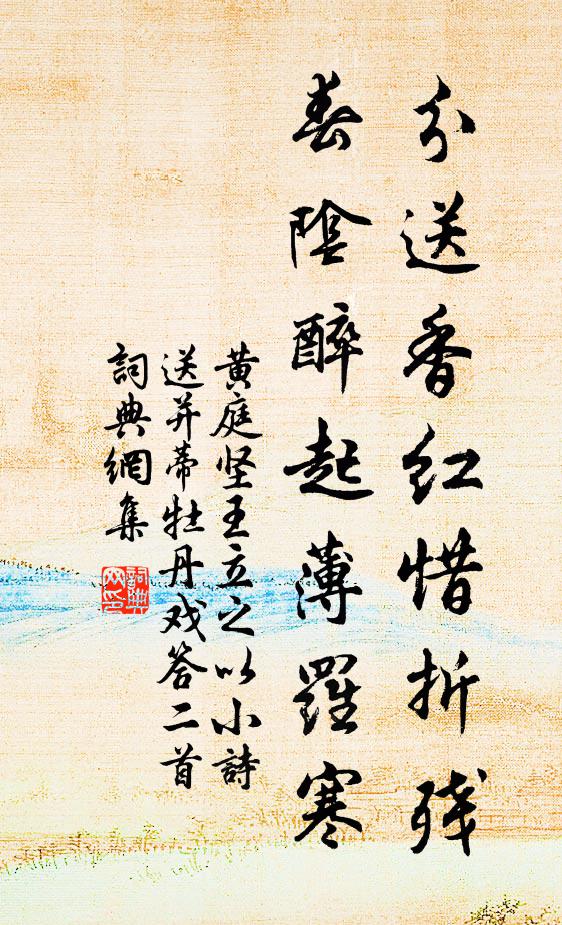 分送香红惜折残
春陰醉起薄羅寒
黄庭坚王立之以小詩
送并蒂牡丹戏答二首
詞典網集
詞典网印